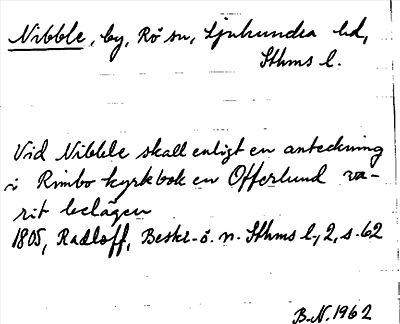 Nibble, by, Rö sn, Sjuhundra hd,
Sthms l.
Vid Nibble skall enligt en anteckning
i Rimbo kyrkbok en Offerlund va-
rit belägen
1805, Radloff, Beskr. ö. n. Sthms l., 2, s. 62
B.N. 1962